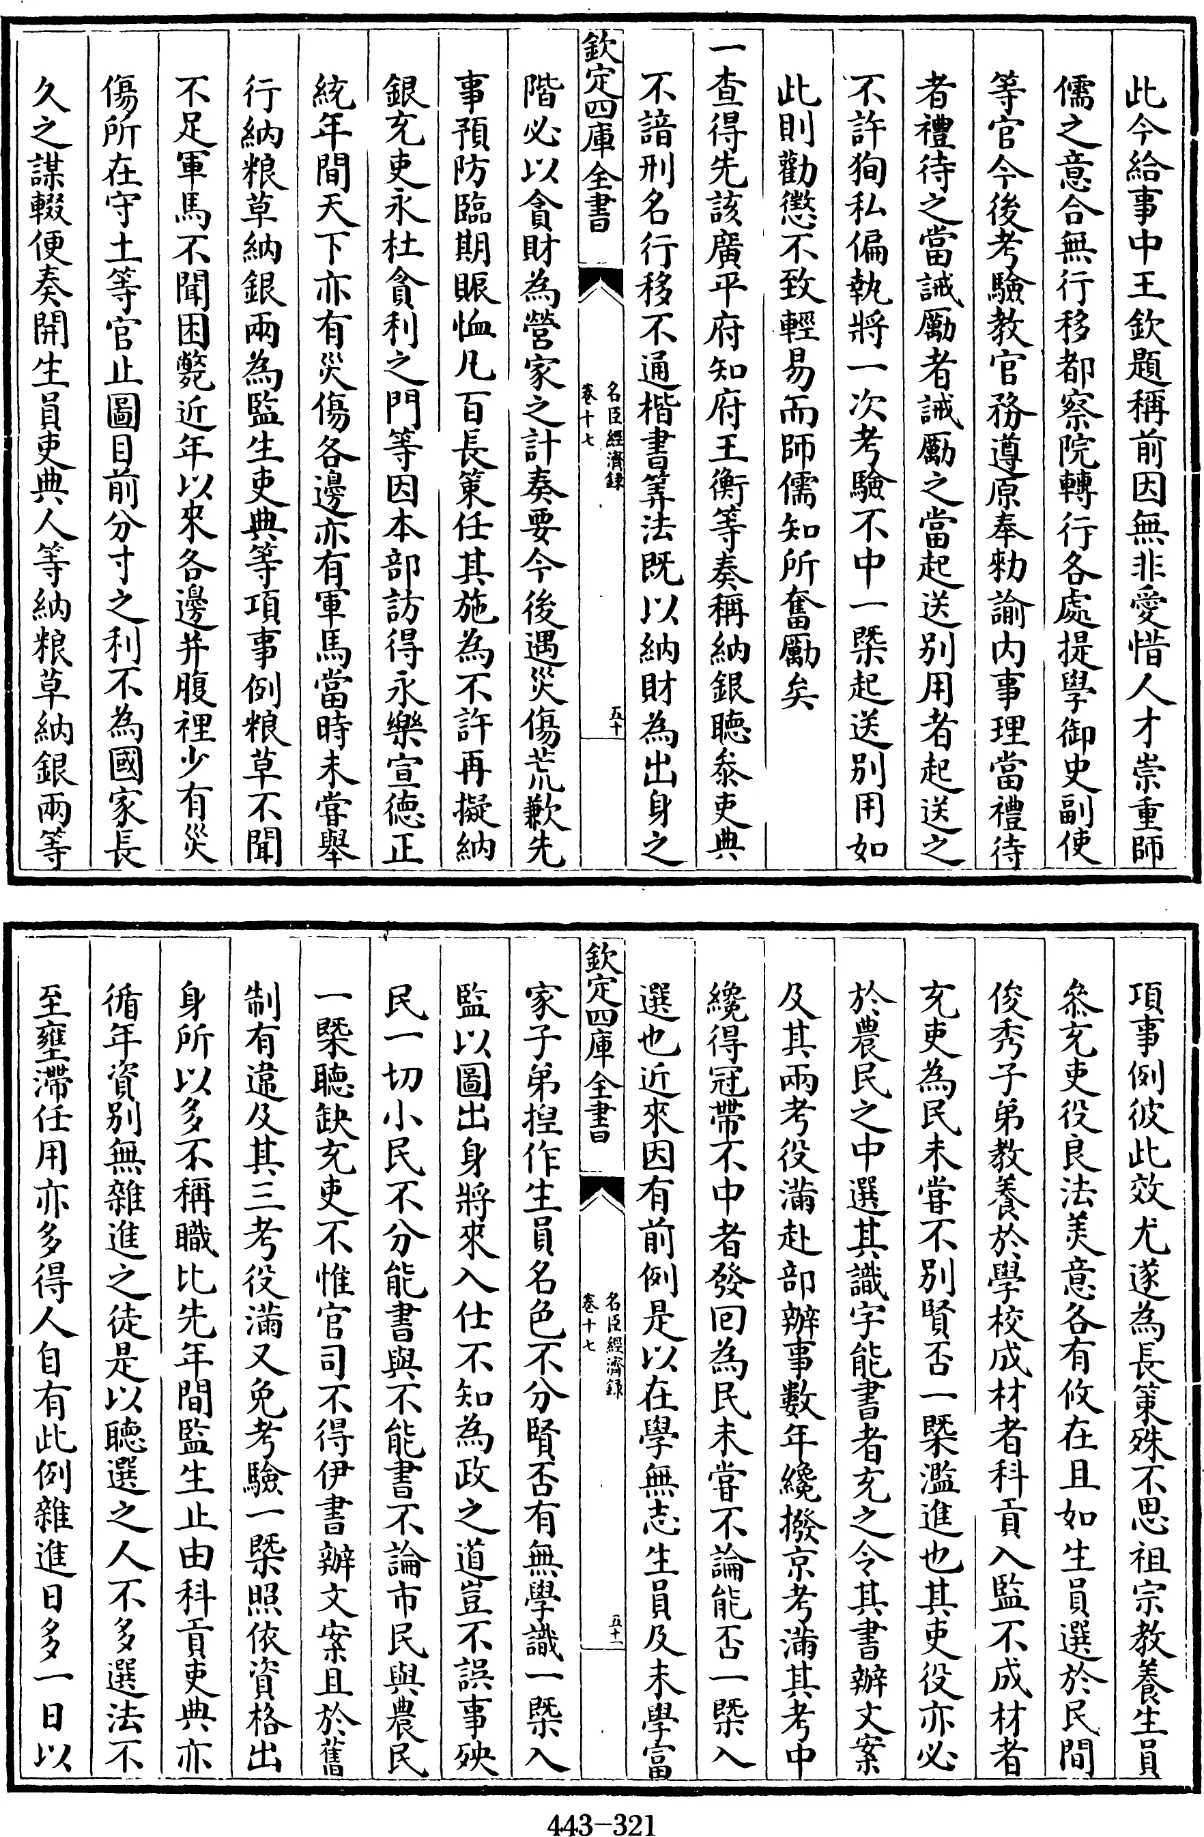 此今給事中王欽題稱前因無非愛惜人才崇重師
儒之意合無行移都察院轉行各處提學御史副使
等官今後考驗教官務遵原奉勅諭内事理當禮待
者禮待之當誡勵者誡勵之當起送别用者起送之
不許狥私偏執將一次考驗不中一槩起送别用如
此則勸懲不致輕易而師儒知所奮勵矣
一查得先該廣平府知府王衡等奏稱納銀聽叅吏典
不諳刑名行移不通楷書筭法既以納財為出身之
欽定四庫全書
名臣經濟録
卷十七
五十
階必以貪財為營家之計奏要今後遇災傷荒歉先
事預防臨期賑恤凡百長策任其施為不許再擬納
銀充吏永杜貪利之門等因本部訪得永樂宣德正
統年間天下亦有災傷各邊亦有軍馬當時未嘗舉
行納粮草納銀兩為監生吏典等項事例粮草不聞
不足軍馬不聞困斃近年以來各邊并腹裡少有災
傷所在守土等官止圖目前分寸之利不為國家長
久之謀輟便奏開生員吏典人等納粮草納銀兩等
項事例彼此效尤遂為長策殊不思祖宗教養生員
叅充吏役良法美意各有攸在且如生員選於民間
俊秀子弟教養於學校成材者科貢入監不成材者
充吏為民未嘗不别賢否一槩濫進也其吏役亦必
於農民之中選其識字能書者充之令其書辦文案
及其兩考役滿赴部辦事數年纔撥京考滿其考中
纔得冠帶不中者發回為民未嘗不論能否一槩入
選也近來因有前例是以在學無志生員及未學富
欽定四庫全書
名臣經濟録
卷十七
五十一
家子弟揑作生員名色不分賢否有無學識一槩入
監以圖出身將來入仕不知為政之道豈不誤事殃
民一切小民不分能書與不能書不論市民與農民
一槩聽缺充吏不惟官司不得伊書辦文案且於舊
制有違及其三考役滿又免考驗一槩照依資格出
身所以多不稱職比先年間監生止由科貢吏典亦
循年資别無雜進之徒是以聽選之人不多選法不
至壅滯任用亦多得人自有此例雜進日多一日以
443-321